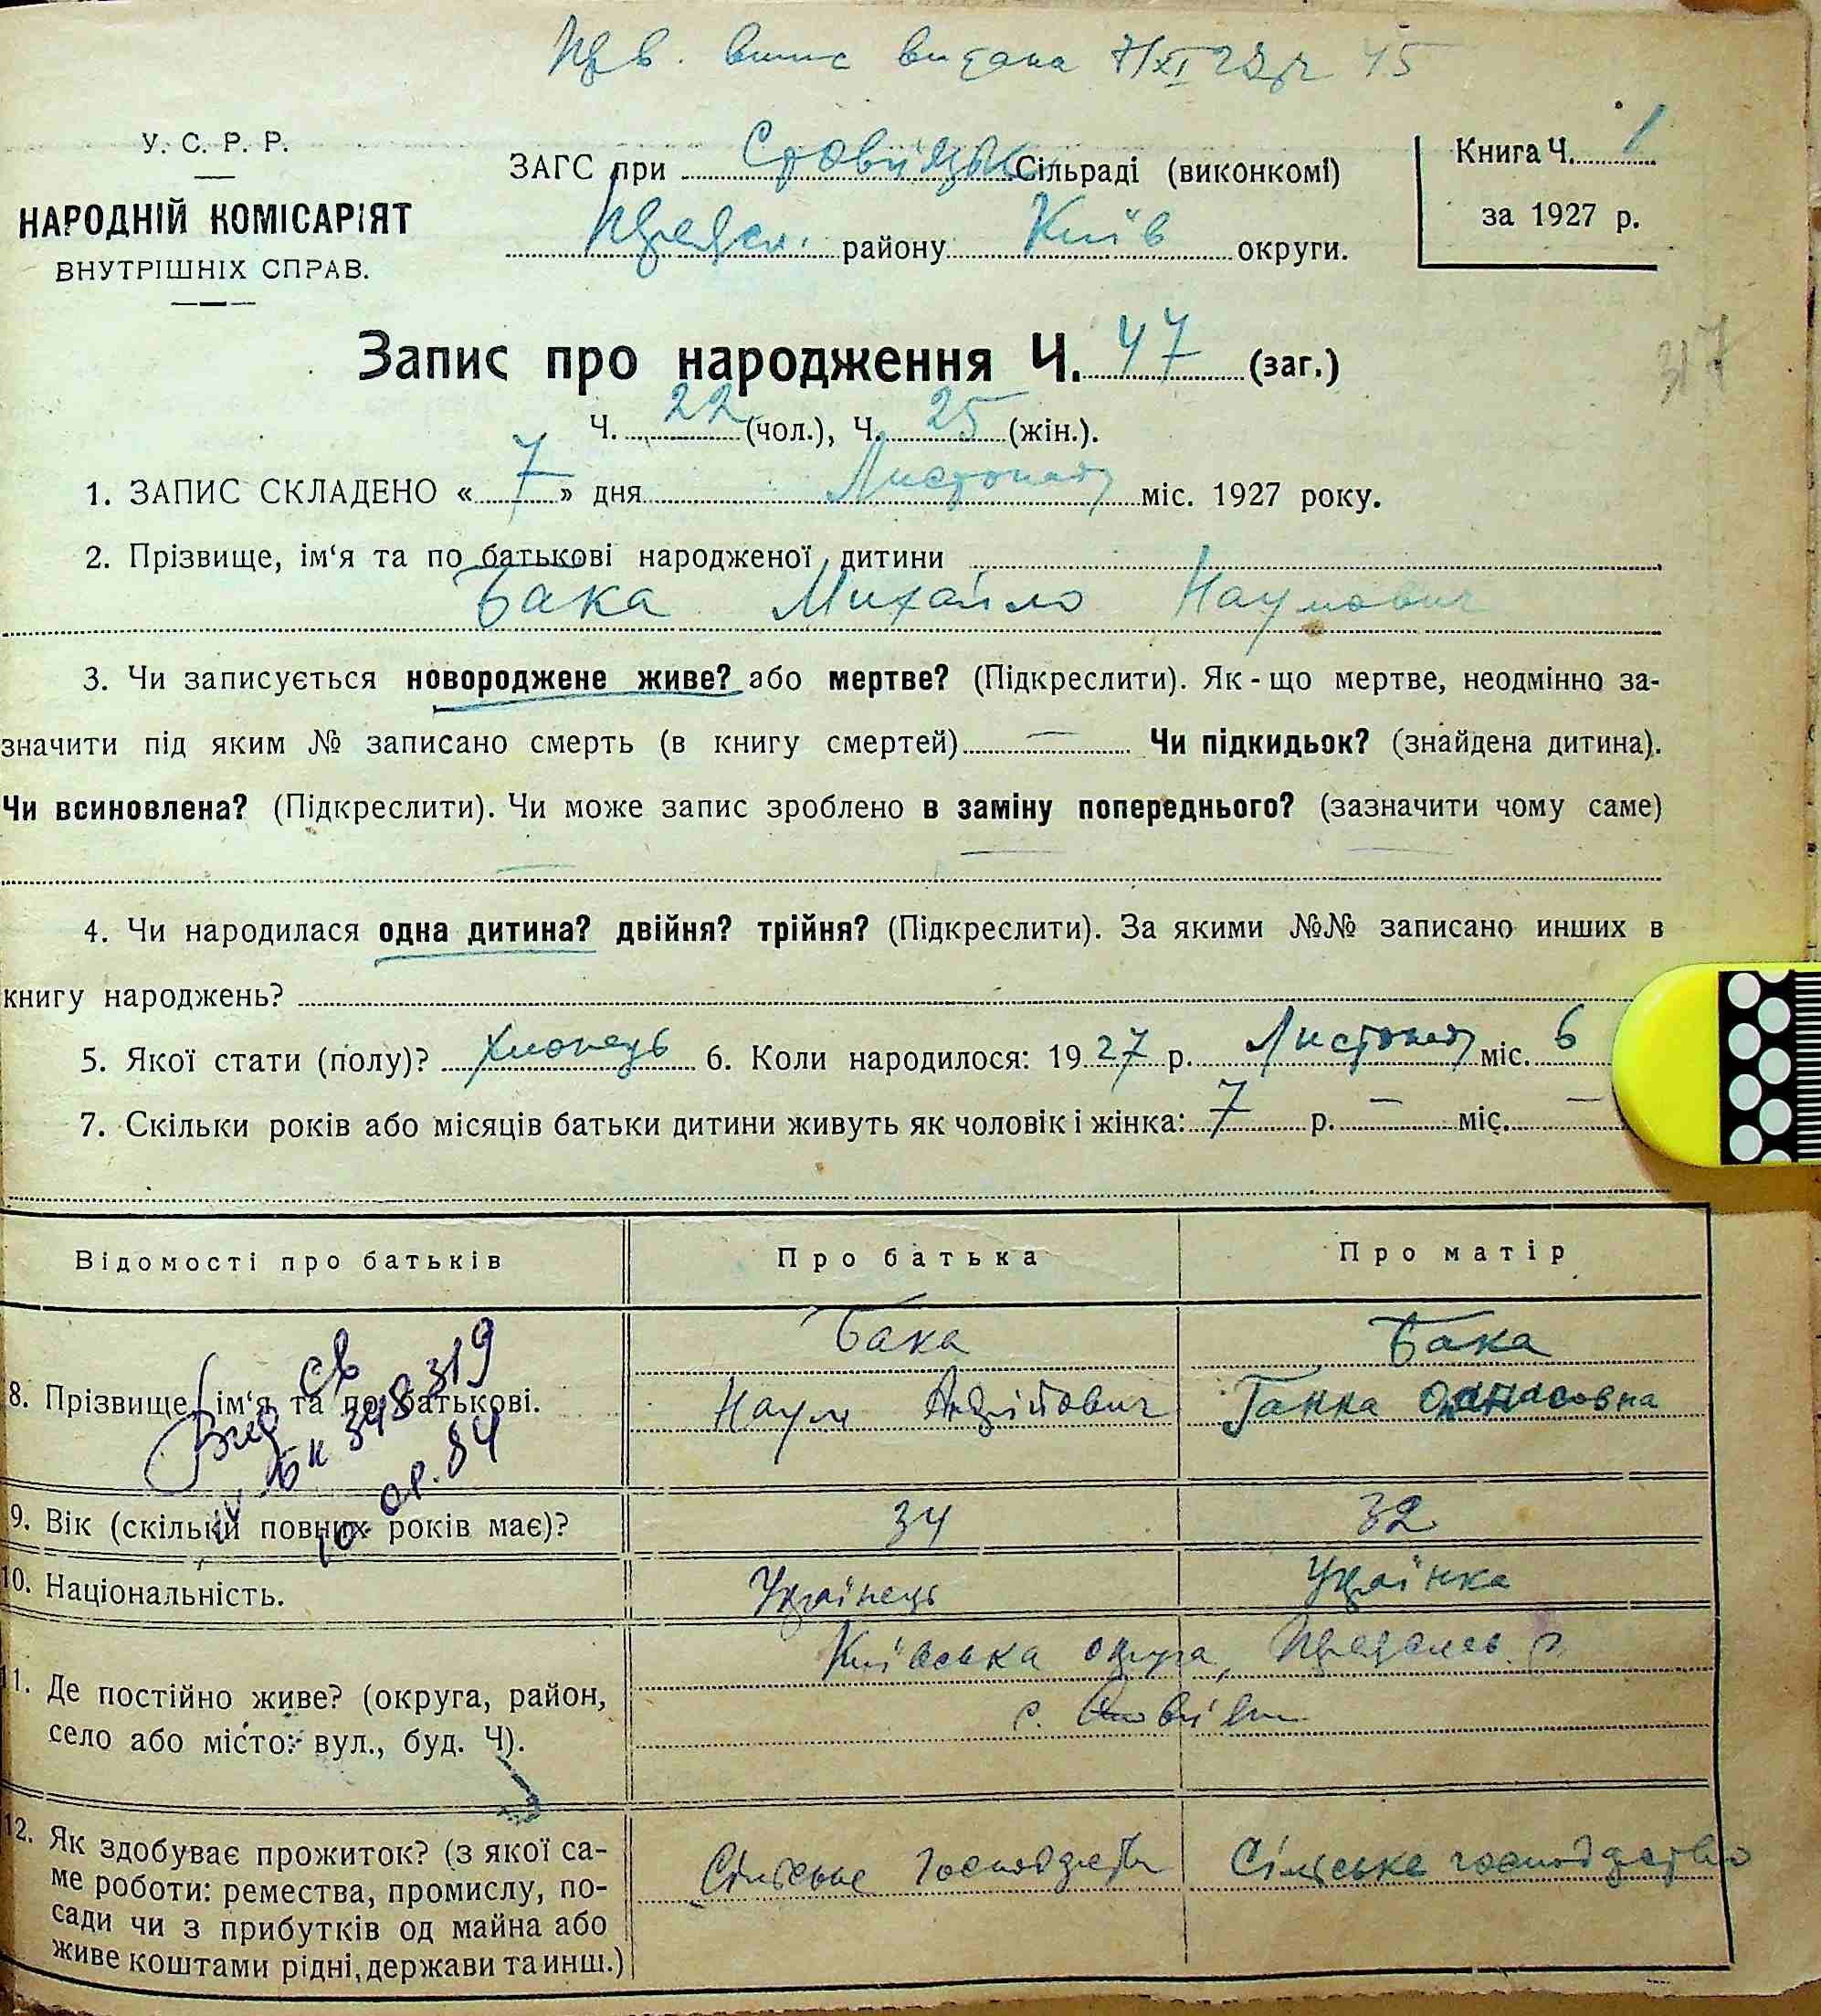 випис видана 7/XI 45
У. С. Р. Р.
НАРОДНІЙ КОМІСАРІЯТ
ВНУТРІШНІХ СПРАВ.
ЗАГС при Сільраді (виконкомі)
району Київ округи.
Книга Ч. 1
за 1927 р.
317
Запис про народження Ч. 47 (заг.)
Ч. 22 (чол.), Ч. 25 (жін.).
1. ЗАПИС СКЛАДЕНО «7» дня Листопад міс. 1927 року.
2. Прізвище, ім‘я та по батькові народженої дитини
Бака Михайло Наумович
3. Чи записується новороджене живе? або мертве? (Підкреслити). Як-що мертве, неодмінно за-
значити під яким № записано смерть (в книгу смертей) — Чи підкидьок? (знайдена дитина).
Чи всиновлена? (Підкреслити). Чи може запис зроблено в заміну попереднього? (зазначити чому саме)
4. Чи народилася одна дитина? двійня? трійня? (Підкреслити). За якими №№ записано инших в
книгу народжень?
5. Якої стати (полу)? хлопець 6. Коли народилося: 1927 р. Листопад міс. 6
7. Скільки років або місяців батьки дитини живуть як чоловік і жінка: 7 р. — міс. —
Відомості про батьків Про батька Про матір
8. Прізвище, ім‘я та по батькові.
Бака Бака
Наум Ганка
319
9. Вік (скільки повних років має)? 34 32
10. Національність. Українець Українка
11. Де постійно живе? (округа, район,
село або місто: вул., буд. Ч).
Київська округа,
с.
12. Як здобуває прожиток? (з якої са-
ме роботи: ремества, промислу, по-
сади чи з прибутків од майна або
живе коштами рідні, держави та инш.)
Сільське господарство Сільське господарство